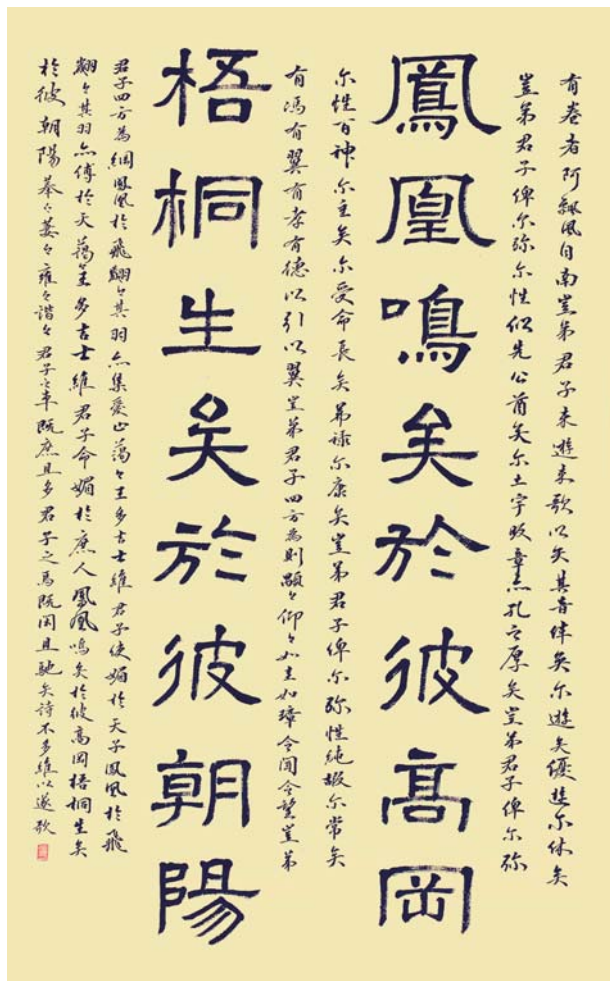 有卷者阿飄風自南豈弟君子来遊来歌以矢其音伴奐尔遊矣優遊尔休矣
豈弟君子俾尔弥尔性似先公酋矣尔土宇昄章亦孔之厚矣豈弟君子俾尔弥
鳳凰鳴矣於彼高岡
尔性百神尔主矣尔受命長矣茀祿尔康矣豈弟君子俾尔弥性純嘏尔常矣
有馮有翼有孝有德以引以翼豈弟君子四方為則顒々仰々如圭如璋令聞令望豈弟
梧桐生矣於彼朝陽
君子四方為綱鳳凰於飛翽々其羽亦集爰止藹々王多吉士維君子使媚於天子鳳凰於飛
翽々其羽亦傅於天藹々王多吉士維君子命媚於庶人鳳凰鳴矣於彼高岡梧桐生矣
於彼朝陽菶々萋々雍々喈々君子之車既庶且多君子之馬既閑且馳矢詩不多維以遂歌